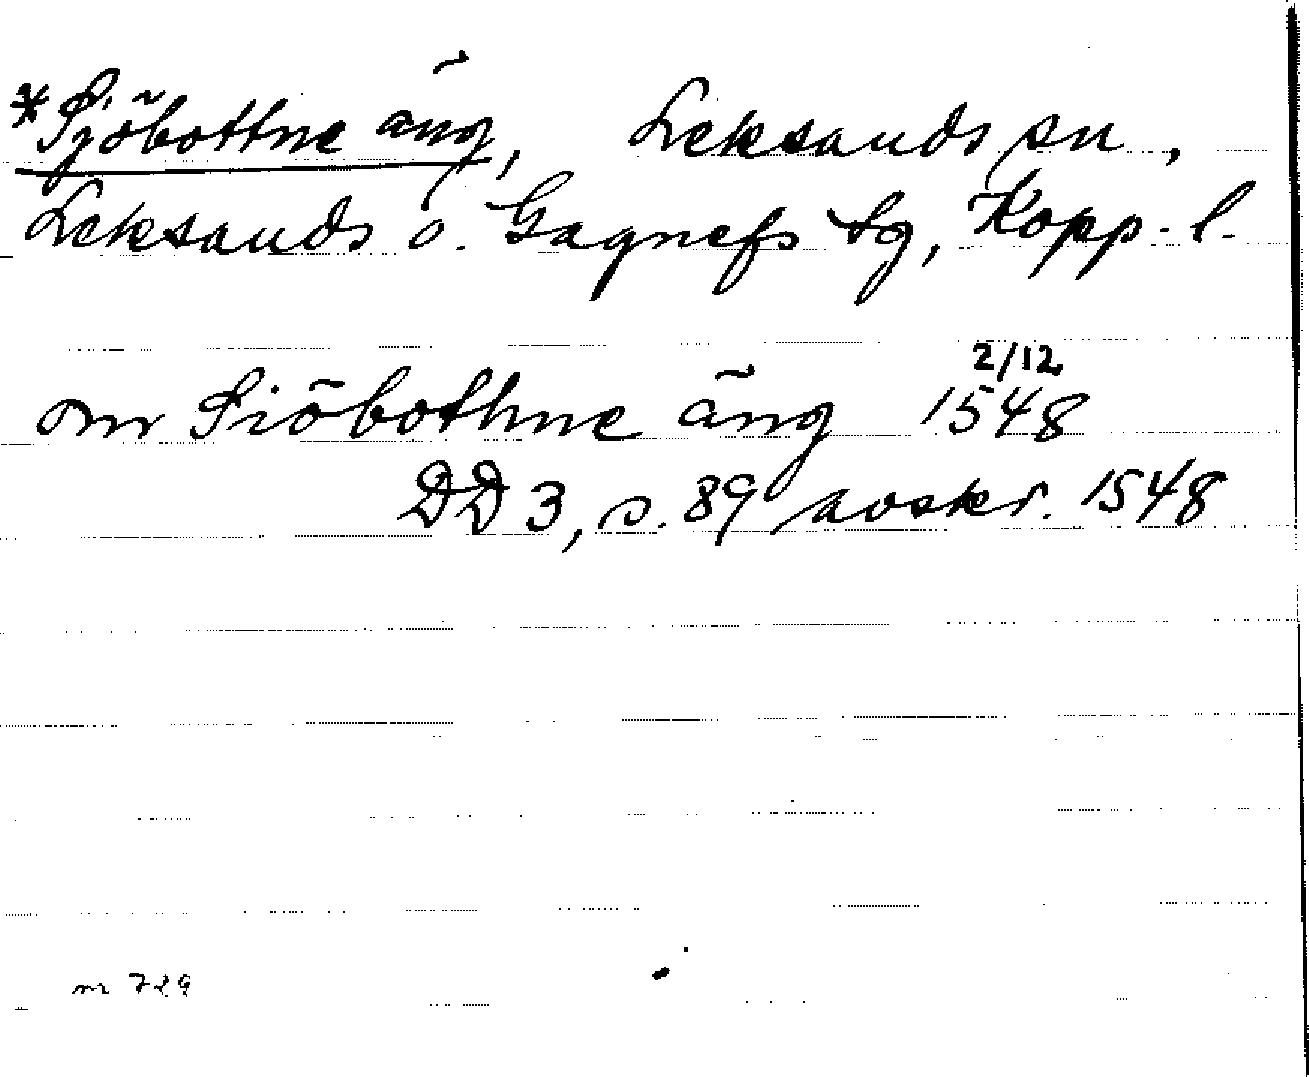 *Sjöbottne äng, Leksands sn,
Leksands o. Gagnefs tg, Kopp. l.
2/12
om Siöbothne äng 1548
DD 3, s. 89 avskr. 1548
nr 729